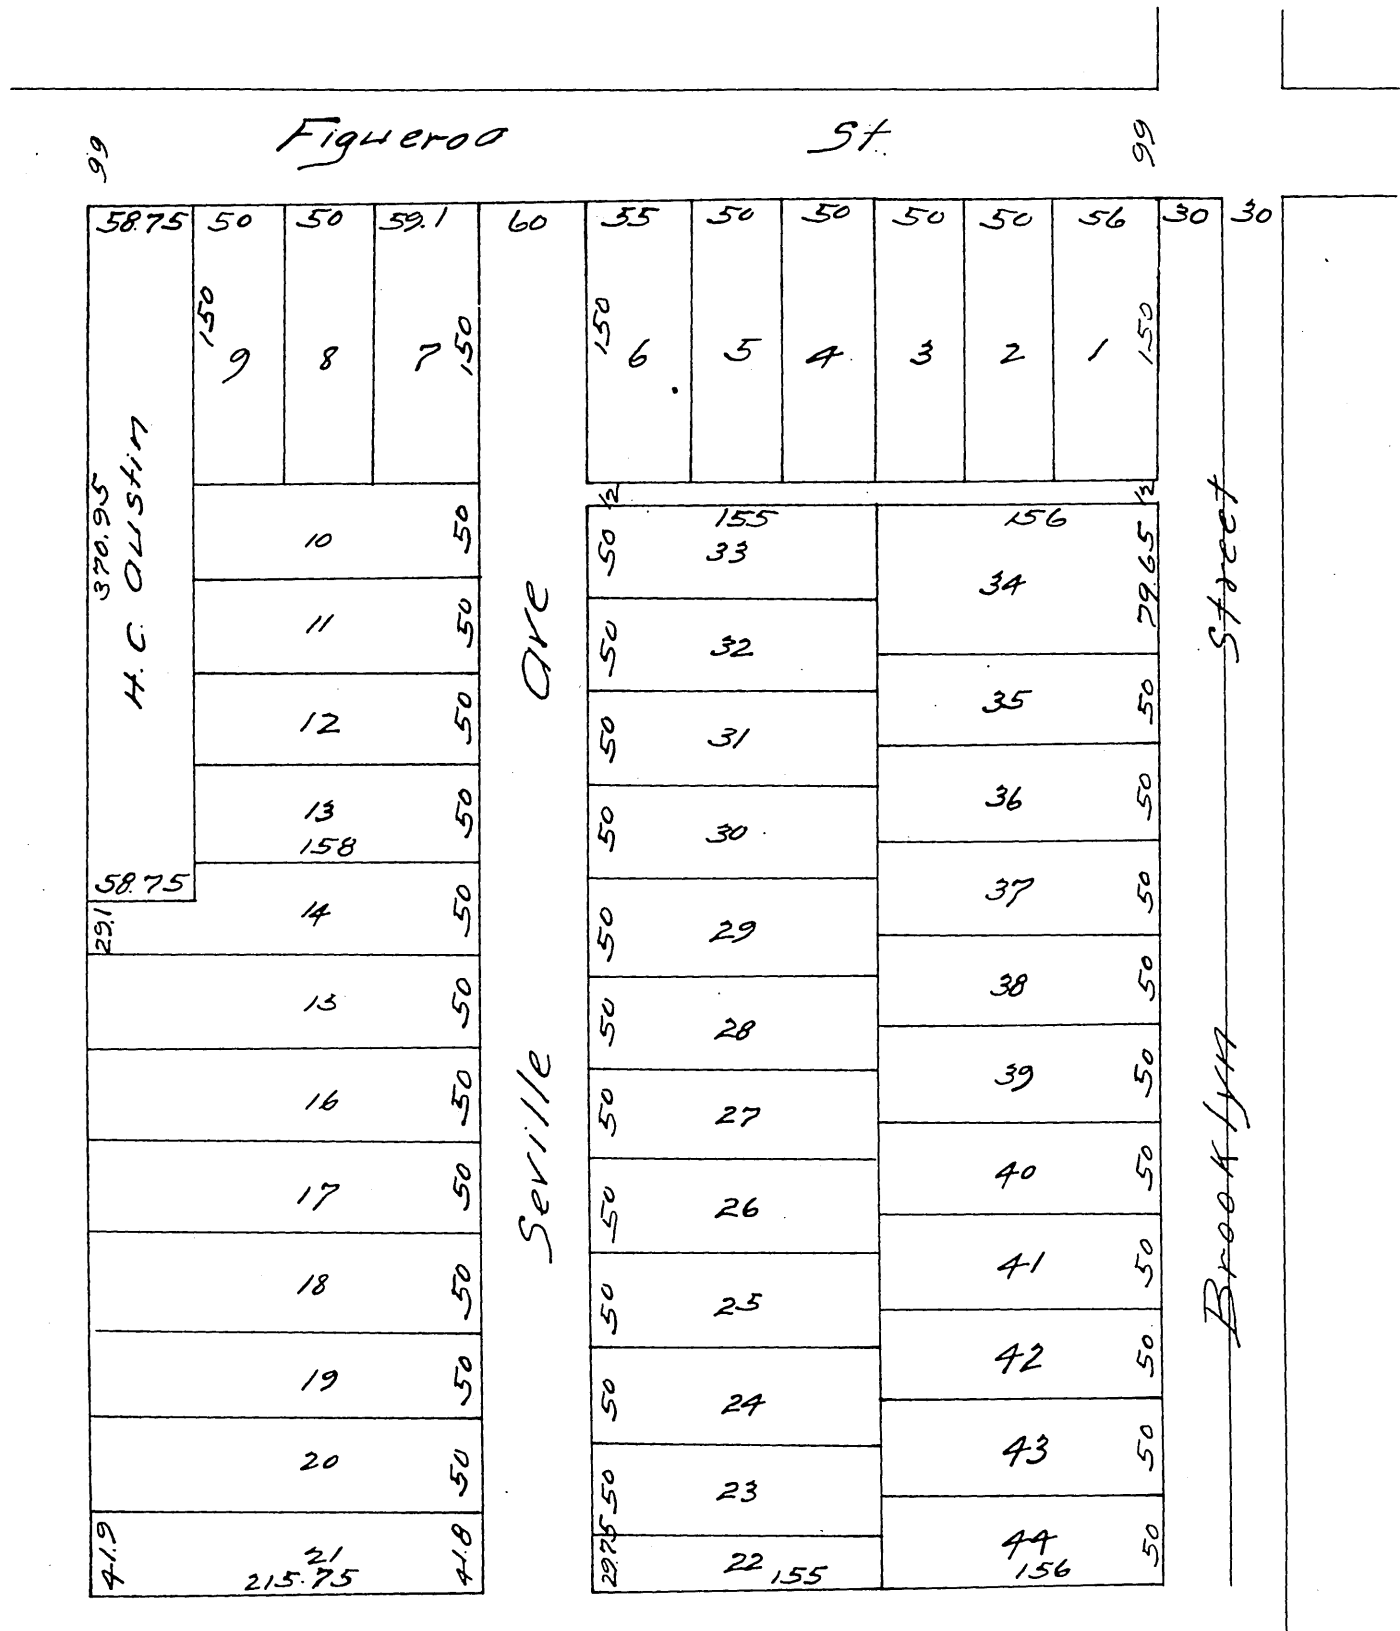 Figueroa St.
99 99
58.75 50 50 59.1 60 55 50 50 50 50 56 30 30
150 150 150 150
9 8 7 6 5 4 3 2 1
H.C. Austin
370.95
58.75
29.1
10 50
11 50
12 50
13 50
158
14 50
13 50
16 50
17 50
18 50
19 50
20 50
41.9 21 41.8
215.75
Seville Ave
12 12
155 156
50 33
50 32
50 31
50 30
50 29
50 28
50 27
50 26
50 25
50 24
50 23
29.75 22 155
34 79.65
35 50
36 50
37 50
38 50
39 50
40 50
41 50
42 50
43 50
44 50
156
Brooklyn Street